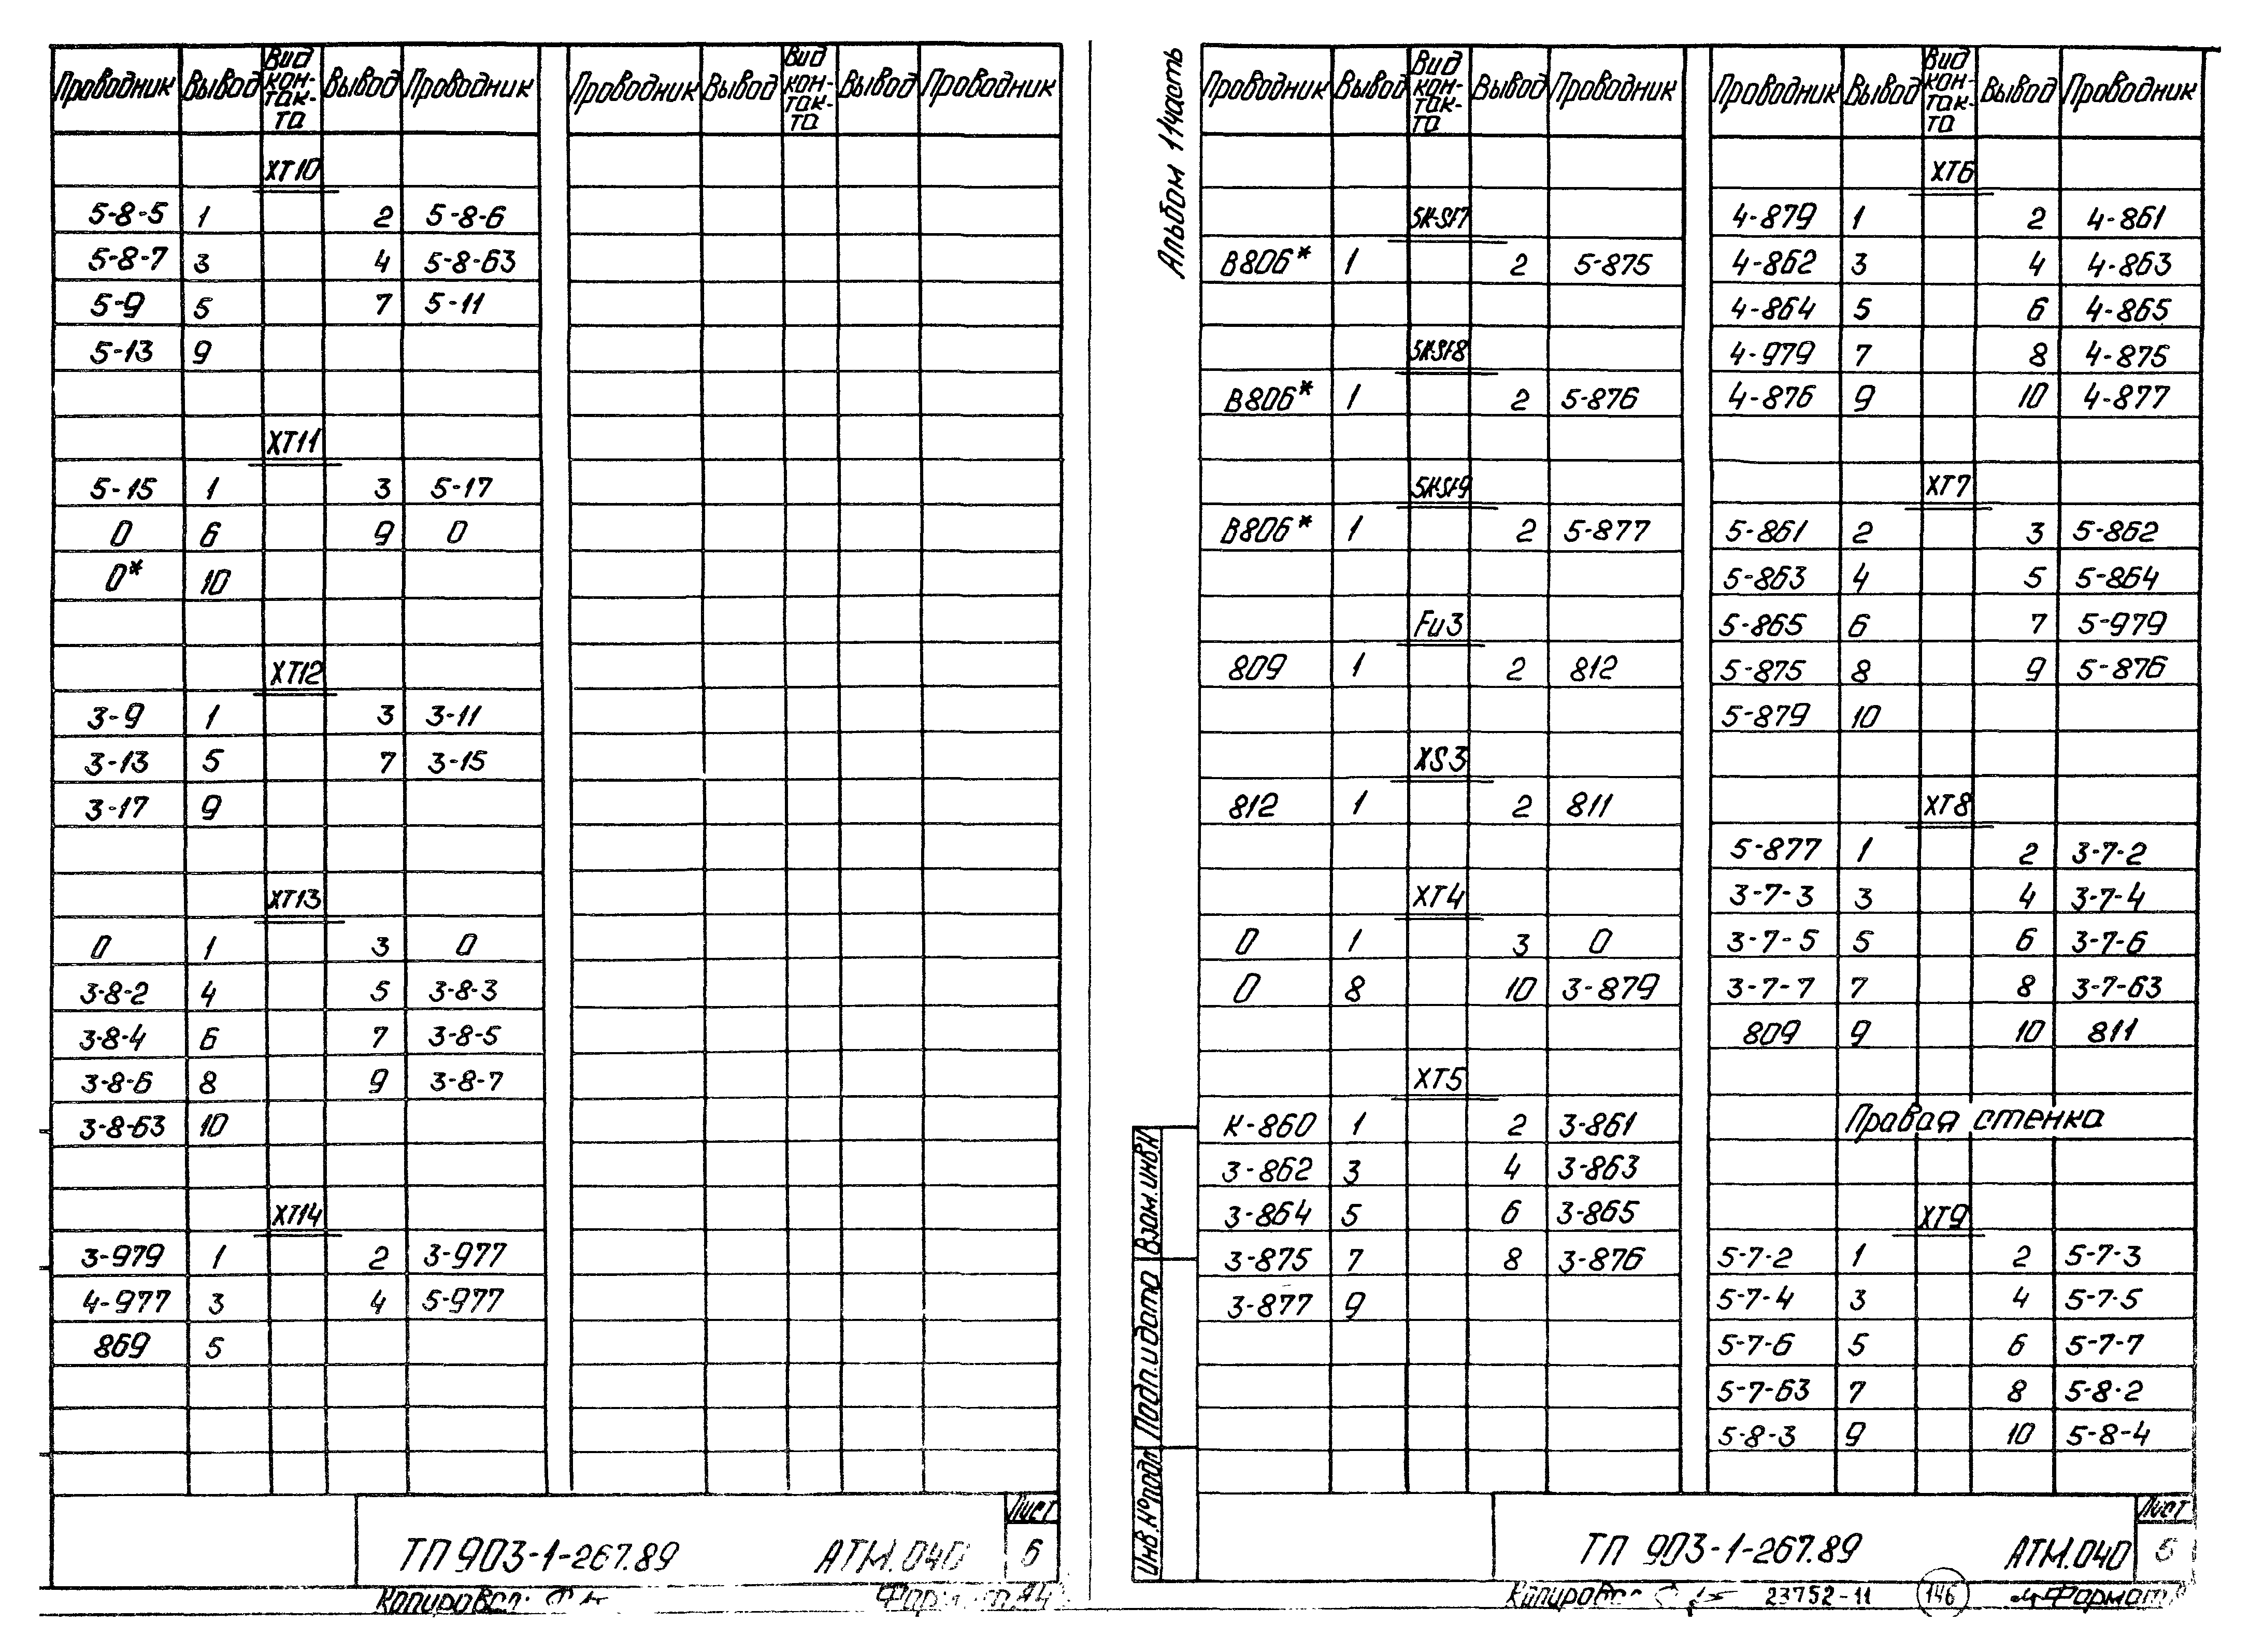 Проводник Вывод Вид кон-так-та Вывод Проводник Проводник Вывод Вид кон-так-та Вывод Проводник
ХТ10
5-8-5 1 2 5-8-6
5-8-7 3 4 5-8-63
5-9 5 7 5-11
5-13 9
ХТ11
5-15 1 3 5-17
0 6 9 0
0* 10
ХТ12
3-9 1 3 3-11
3-13 5 7 3-15
3-17 9
ХТ13
0 1 3 0
3-8-2 4 5 3-8-3
3-8-4 6 7 3-8-5
3-8-6 8 9 3-8-7
3-8-63 10
ХТ14
3-979 1 2 3-977
4-977 3 4 5-977
869 5
Лист
ТП 903-1-267.89 АТМ.040 6
Копировал: Формат А4
Альбом 11 часть
Проводник Вывод Вид кон-так-та Вывод Проводник
5К-SF7
В806* 1 2 5-875
5К-SF8
В806* 1 2 5-876
5К-SF9
В806* 1 2 5-877
Fu3
809 1 2 812
XS3
812 1 2 811
ХТ4
0 1 3 0
0 8 10 3-879
ХТ5
К-860 1 2 3-861
3-862 3 4 3-863
3-864 5 6 3-865
3-875 7 8 3-876
3-877 9
Проводник Вывод Вид кон-так-та Вывод Проводник
ХТ6
4-879 1 2 4-861
4-862 3 4 4-863
4-864 5 6 4-865
4-979 7 8 4-875
4-876 9 10 4-877
ХТ7
5-861 2 3 5-862
5-863 4 5 5-864
5-865 6 7 5-979
5-875 8 9 5-876
5-879 10
ХТ8
5-877 1 2 3-7-2
3-7-3 3 4 3-7-4
3-7-5 5 6 3-7-6
3-7-7 7 8 3-7-63
809 9 10 811
Правая стенка
ХТ9
5-7-2 1 2 5-7-3
5-7-4 3 4 5-7-5
5-7-6 5 6 5-7-7
5-7-63 7 8 5-8-2
5-8-3 9 10 5-8-4
Взам.инв.N
Подп.и дата
Инв.N°подл
Лист
ТП 903-1-267.89 АТМ.040 5
Копировал 23752-11 146 Формат